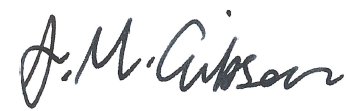 J. M. Gibson